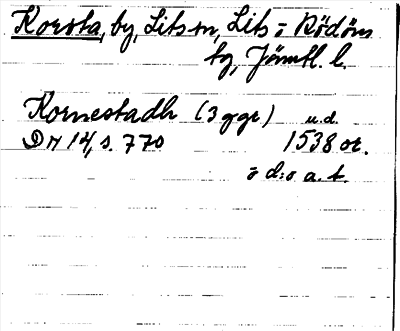 Korsta, by, Lits sn, Lits o Rödöns
tg, Jämtl. l.
Kornestadh (3 ggr) u.d.
DN 14, s. 770 1538 or.
o d:o a. t.